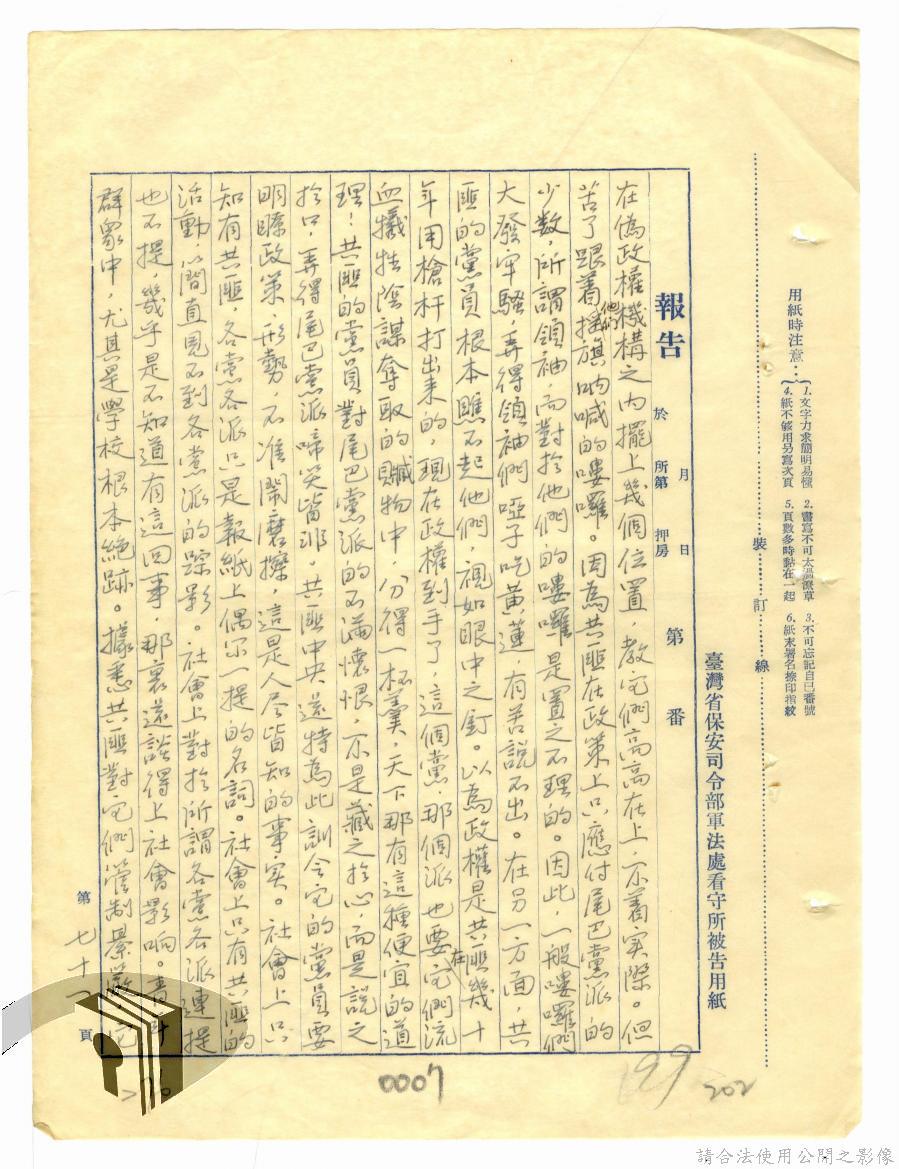 用紙時注意：
1. 文字力求簡明易懂　2. 書寫不可太過潦草　3. 不可忘記自己番號
4. 紙不够用另寫次頁　5. 頁數多時黏在一起　6. 紙末署名捺印指紋
裝訂線
臺灣省保安司令部軍法處看守所被告用紙
報告　於　月　日　所第　押房　第　番
在偽政權機構之內擺上幾個位置，教它們高高在上，不著實際。但
苦了跟着他們搖旗吶喊的嘍囉。因為共匪在政策上只應付尾巴黨派的
少數，所謂領袖，而對於他們的嘍囉是置之不理的。因此，一般嘍囉們
大發牢騷，弄得領袖們啞子吃黃蓮，有苦說不出。在另一方面，共
匪的黨員根本瞧不起他們，視如眼中之釘。以為政權是共匪幾十
年用槍杆打出來的，現在政權到手了，這個黨，那個派也要它們在流
血犧牲陰謀奪取的贓物中，分得一杯羹，天下那有這種便宜的道
理！共匪的黨員對尾巴黨派的不滿懷恨，不是藏之於心，而是說之
於口，弄得尾巴黨派啼笑皆非。共匪中央還特為此訓令它的黨員要
明瞭政策、形勢，不准鬧磨擦，這是人尽皆知的事实。社會上只
知有共匪，各黨各派只是報紙上偶尔一提的名詞。社會上只有共匪的
活動，簡直見不到各黨派的踪影。社會上對於所謂各黨各派連提
也不提，幾乎是不知道有這回事，那裏還談得上社會影响。青年
群眾中，尤其是學校根本絕跡。據悉共匪對它們管制綦嚴，它
第七十　頁
0007
199
202
請合法使用公開之影像